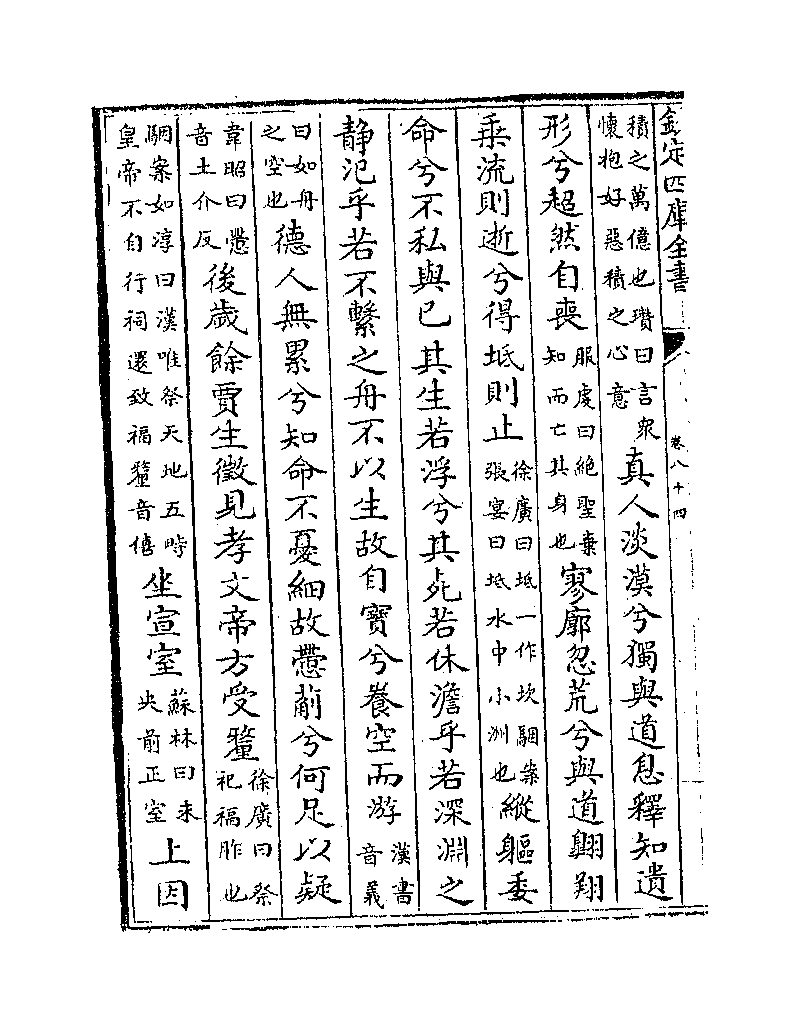 欽定四庫全書
卷八十四
積之萬億也瓚曰言衆懷抱好惡積之心意真人淡漠兮獨與道息釋知遺
形兮超然自喪服虔曰絶聖棄知而亡其身也寥廓忽荒兮與道翺翔
乘流則逝兮得坻則止徐廣曰坻一作坎駰案張宴曰坻水中小洲也縱軀委
命兮不私與已其生若浮兮其死若休澹乎若深淵之
静氾乎若不繫之舟不以生故自寶兮養空而游漢書音義
曰如舟之空也德人無累兮知命不憂細故慸葪兮何足以疑
韋昭曰慸音士介反後歲餘賈生徵見孝文帝方受釐徐廣曰祭祀福胙也
駰案如淳曰漢唯祭天地五畤皇帝不自行祠還致福釐音僖坐宣室蘇林曰未央前正室上因